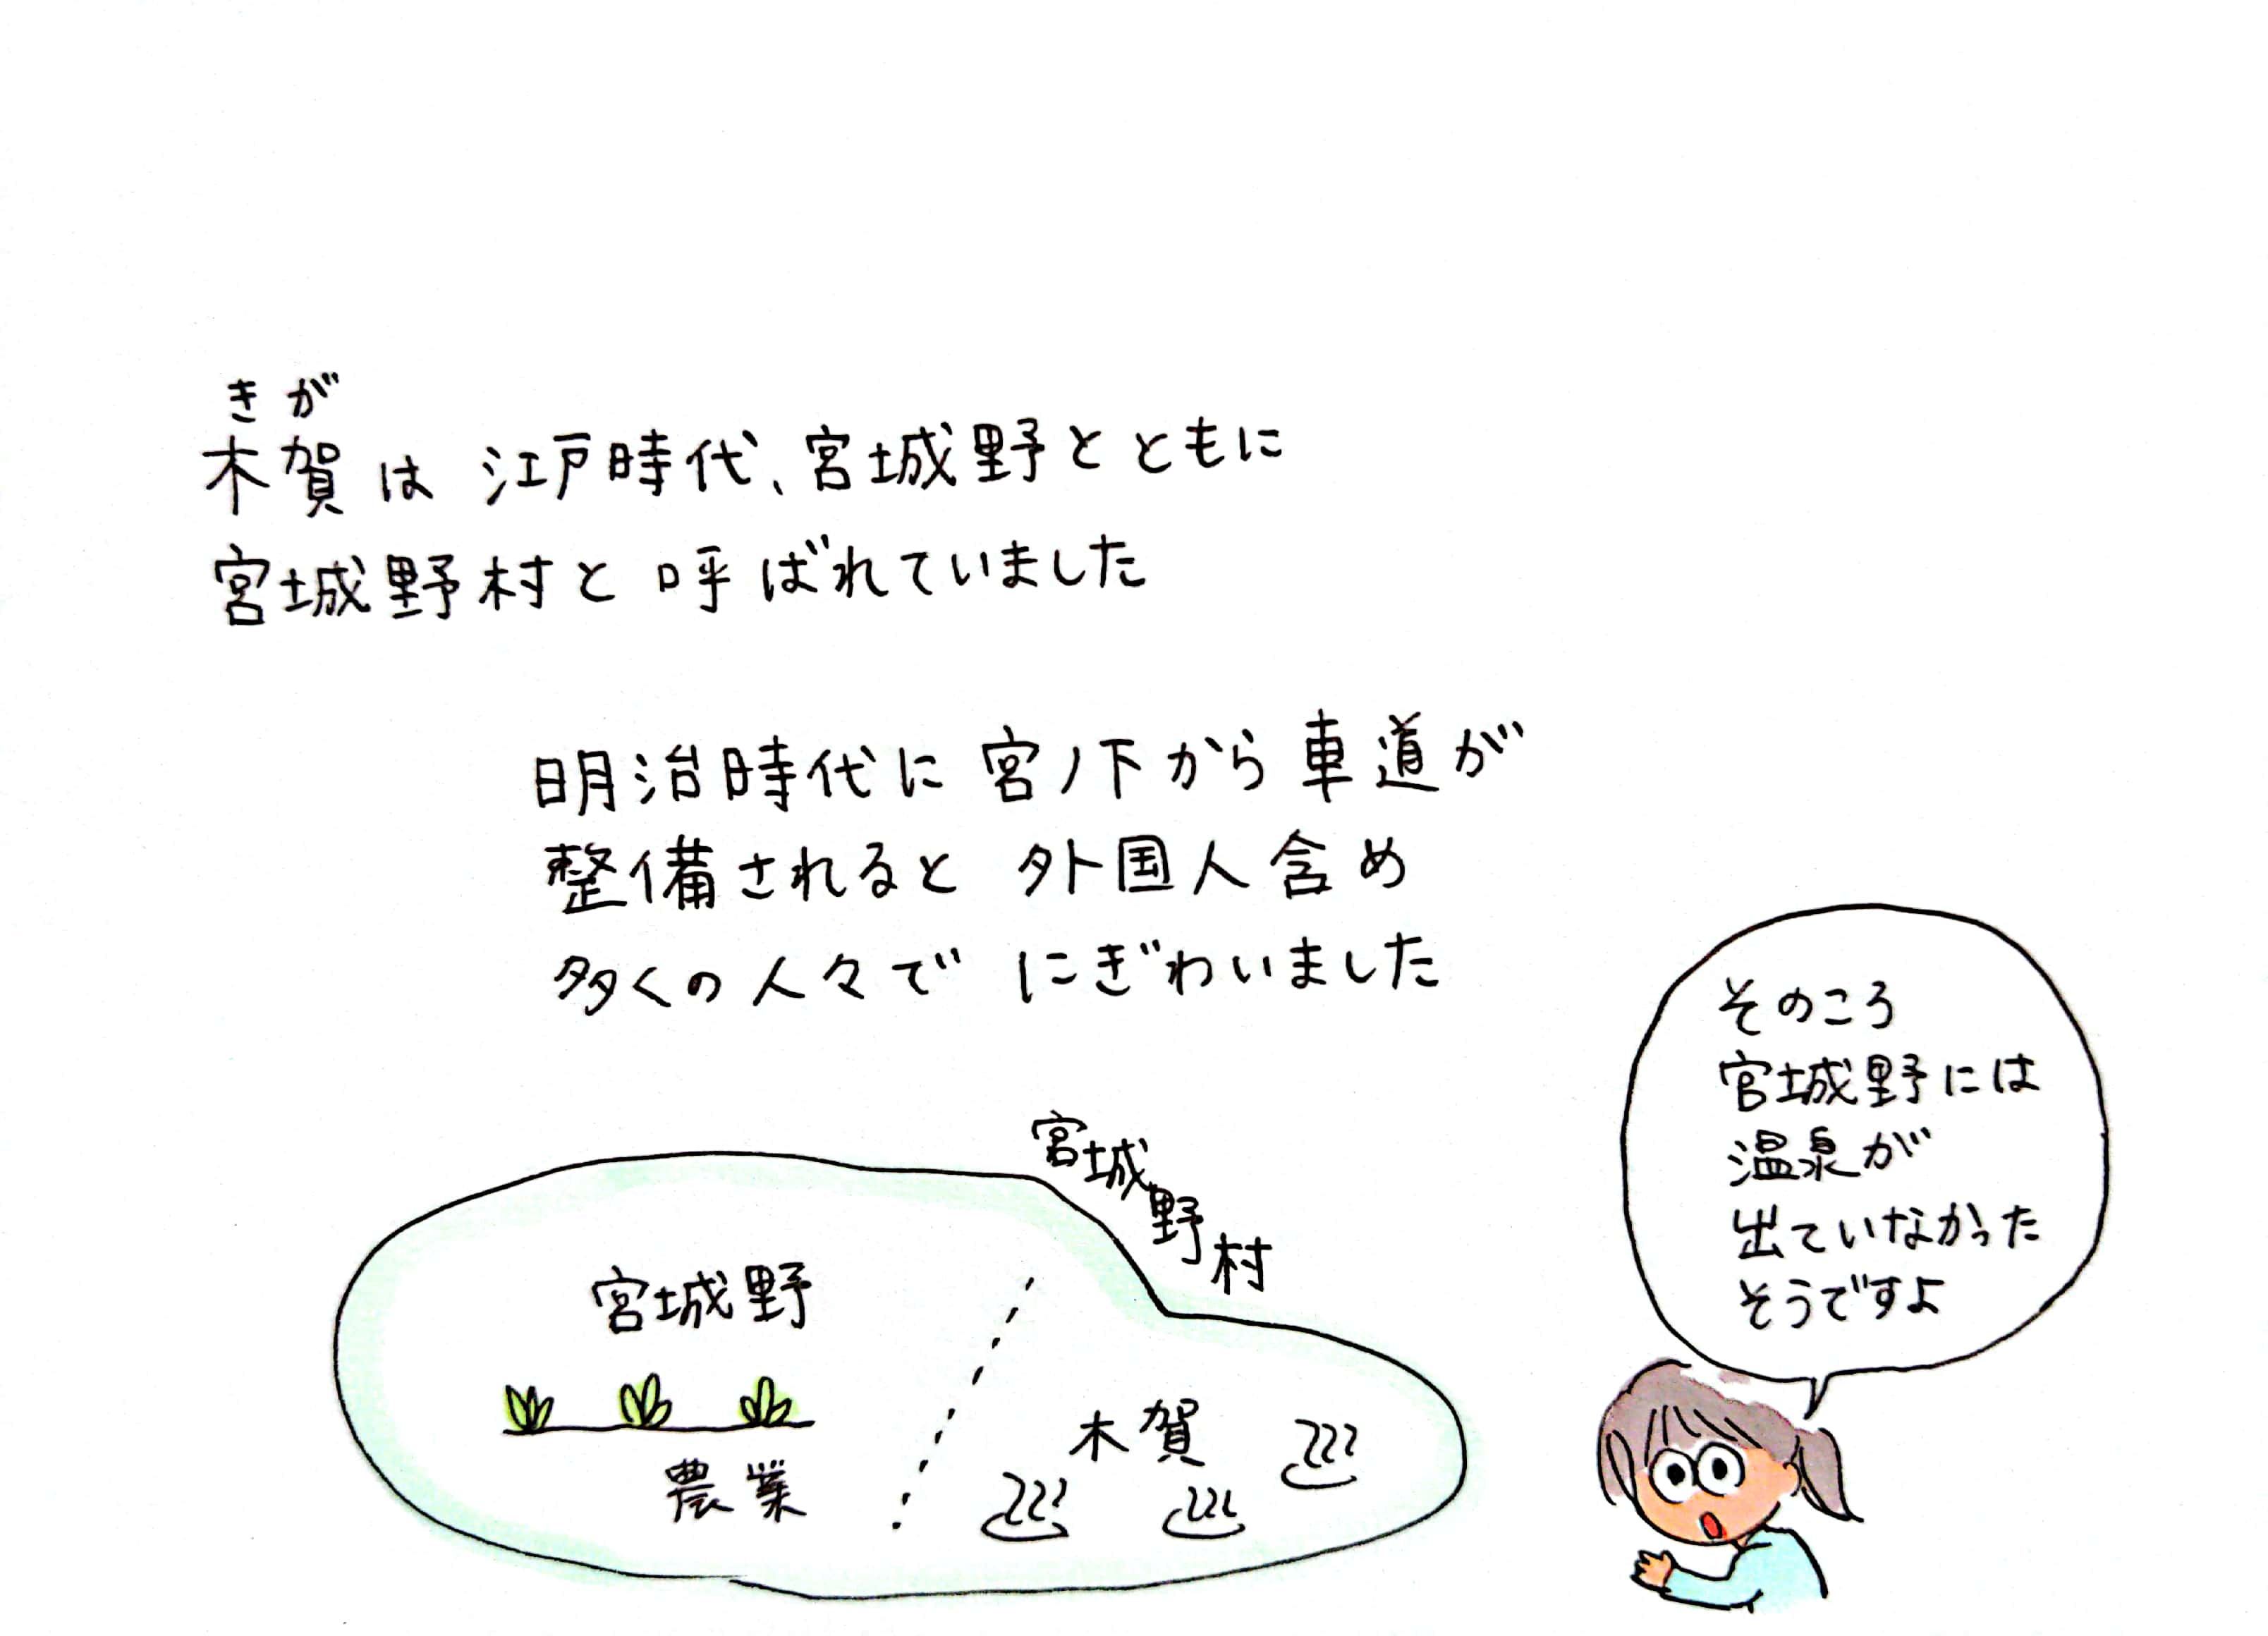 きが
木賀は江戸時代、宮城野とともに
宮城野村と呼ばれていました
明治時代に宮ノ下から車道が
整備されると外国人含め
多くの人々でにぎわいました
そのころ
宮城野には
温泉が
出ていなかった
そうですよ
宮城野村
宮城野
農業
木賀